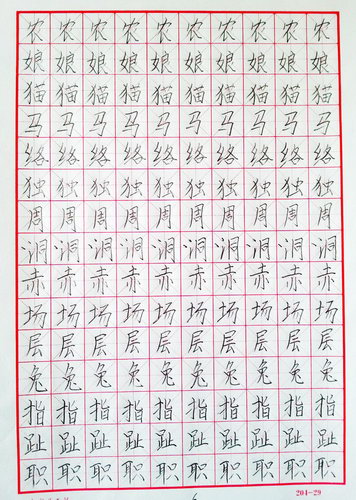 农农农农农农农农农农
娘娘娘娘娘娘娘娘娘娘
猫猫猫猫猫猫猫猫猫猫
马马马马马马马马马马
络络络络络络络络络络
独独独独独独独独独独
周周周周周周周周周周
洞洞洞洞洞洞洞洞洞洞
赤赤赤赤赤赤赤赤赤赤
场场场场场场场场场场
层层层层层层层层层层
兔兔兔兔兔兔兔兔兔兔
指指指指指指指指指指
趾趾趾趾趾趾趾趾趾趾
职职职职职职职职职职
204-29